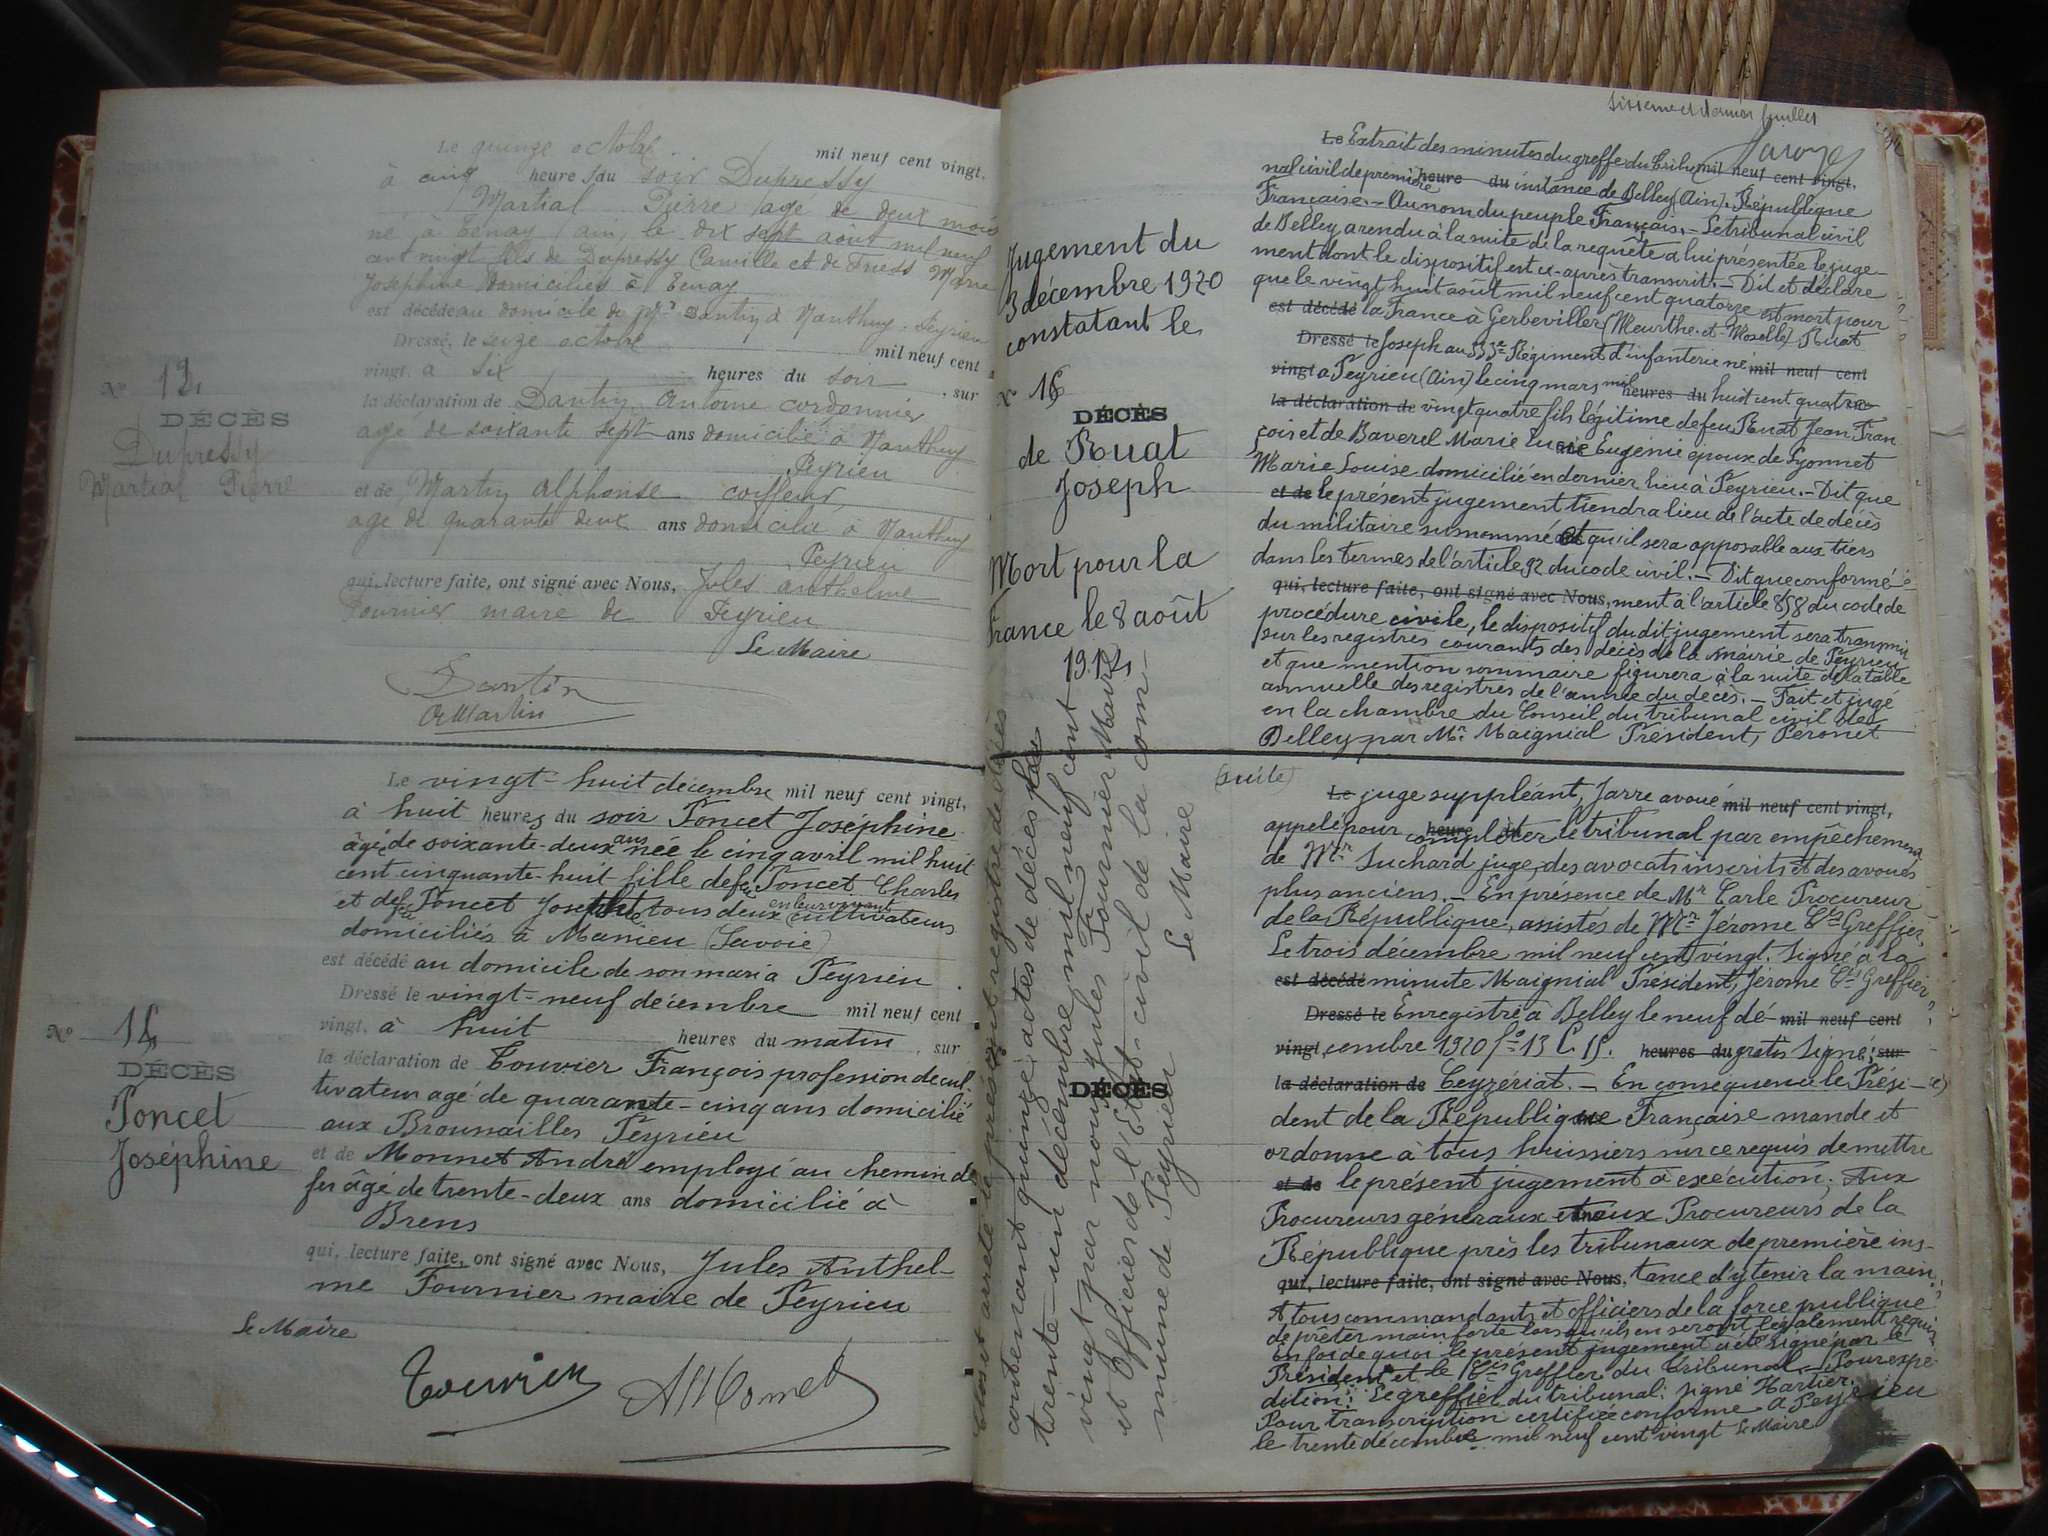 Le quinze octobre mil neuf cent vingt,
à cinq heures du soir Dupressy
Martial Pierre agé de deux mois
né à Tenay (ain) le dix sept août mil neuf
cent vingt fils de Dupressy Camille et de Friess Marie
Joséphine domiciliés à Tenay
est décédé au domicile de Mr Dantin à Nanthuy, Peyrieu
Dressé, le seize octobre mil neuf cent
vingt, à six heures du soir, sur
la déclaration de Dantin Antoine cordonnier
agé de soixante sept ans domicilié à Nanthuy
Peyrieu
et de Martin Alphonse coiffeur,
age de quarante deux ans domicilié à Nanthuy
Peyrieu
qui, lecture faite, ont signé avec Nous, Jules anthelme
Fournier maire de Peyrieu
Le Maire
Dantin
A Martin
No 13
DÉCÈS
Dupressy
Martial Pierre
Le vingt-huit décembre mil neuf cent vingt,
à huit heures du soir Poncet Joséphine
âgée de soixante-deux ans née le cinq avril mil huit
cent cinquante-huit fille de feu Poncet Charles
et de feu Poncet Josephte tous deux en leur vivant cultivateurs
domiciliés à (Savoie)
est décédé au domicile de son mari à Peyrieu
Dressé le vingt-neuf décembre mil neuf cent
vingt, à huit heures du matin, sur
la déclaration de Touvier François profession de cul-
tivateur agé de quarante-cinq ans domicilié
aux Brounailles Peyrieu
et de Monnet André employé au chemin de
fer âgé de trente-deux ans domicilié à
Brens
qui, lecture faite, ont signé avec Nous, Jules Anthel-
me Fournier maire de Peyrieu
Le Maire
Touvier
A Monnet
No 14
DÉCÈS
Poncet
Joséphine
Sixième et dernier feuillet
Jugement du
3 décembre 1920
constatant le
No 15
DÉCÈS
de Ruat
Joseph
Mort pour la
France le 8 août
1914
Le Extrait des minutes du greffe du tribu mil neuf cent vingt,
nal civil de première heure du instance de Belley (Ain). République
Française. — Au nom du peuple Français. — Le tribunal civil
de Belley, a rendu à la suite de la requête à lui présentée le juge-
ment dont le dispositif est ci-après transcrit. — Dit et déclare
que le vingt huit août mil neuf cent quatorze est mort pour
est décédé la France à Gerbeviller (Meurthe-et-Moselle) Ruat
Dressé le Joseph au 333e Régiment d'infanterie né mil neuf cent
vingt à Peyrieu (Ain) le cinq mars mil heures du huit cent quatre
la déclaration de vingt quatre fils légitime de feu Ruat Jean Fran
çois et de Baverel Marie Eugénie époux de Lyonnet
Marie Louise domicilié en dernier lieu à Peyrieu. — Dit que
et de le présent jugement tiendra lieu de l'acte de décès
du militaire susnommé et qu'il sera opposable aux tiers
dans les termes de l'article 92 du code civil. — Dit que conformé-
qui, lecture faite, ont signé avec Nous, ment à l'article 858 du code de
procédure civile, le dispositif du dit jugement sera transmis
sur les registres courants des décès de la mairie de Peyrieu
et que mention sommaire figurera à la suite de la table
annuelle des registres de l'année du décès. — Fait et jugé
en la chambre du Conseil du tribunal civil de
Belley par Mr Maignial Président, Peronet
(suite)
Le juge suppléant, Jarre avoué mil neuf cent vingt,
appelé pour heure du compléter le tribunal par empêchement
de Mr Suchard juge, des avocats inscrits et des avoués
plus anciens. — En présence de Mr Carle Procureur
de la République, assistés de Mr Jérome Cis Greffier,
Le trois décembre mil neuf cent vingt. Signé à la
est décédé minute Maignial Président, Jérome Cis Greffier
Dressé le Enregistré à Belley le neuf dé- mil neuf cent
vingt, cembre 1920 fo 13 C 15. heures du gratis Signé: sur
la déclaration de Ceyzériat. — En conséquence le Prési-
dent de la République Française mande et
ordonne à tous huissiers sur ce requis de mettre
et de le présent jugement à exécution; Aux
Procureurs généraux et aux Procureurs de la
République près les tribunaux de première ins-
qui, lecture faite, ont signé avec Nous, tance d'y tenir la main,
A tous commandants et officiers de la force publique
de prêter main forte lorsqu'ils en seront légalement requis
En foi de quoi le présent jugement a été signé par le
Président et le Cis Greffier du Tribunal — Pour expé-
dition: Le greffier du tribunal: signé Hartier.
Pour transcription certifiée conforme à Peyrieu
le trente décembre mil neuf cent vingt Le Maire
DÉCÈS
Clos et arrêté le présent registre de décès
contenant quinze actes de décès le
trente-un décembre mil neuf cent
vingt par nous Jules Fournier Maire
et Officier de l'Etat-civil de la com-
mune de Peyrieu
Le Maire